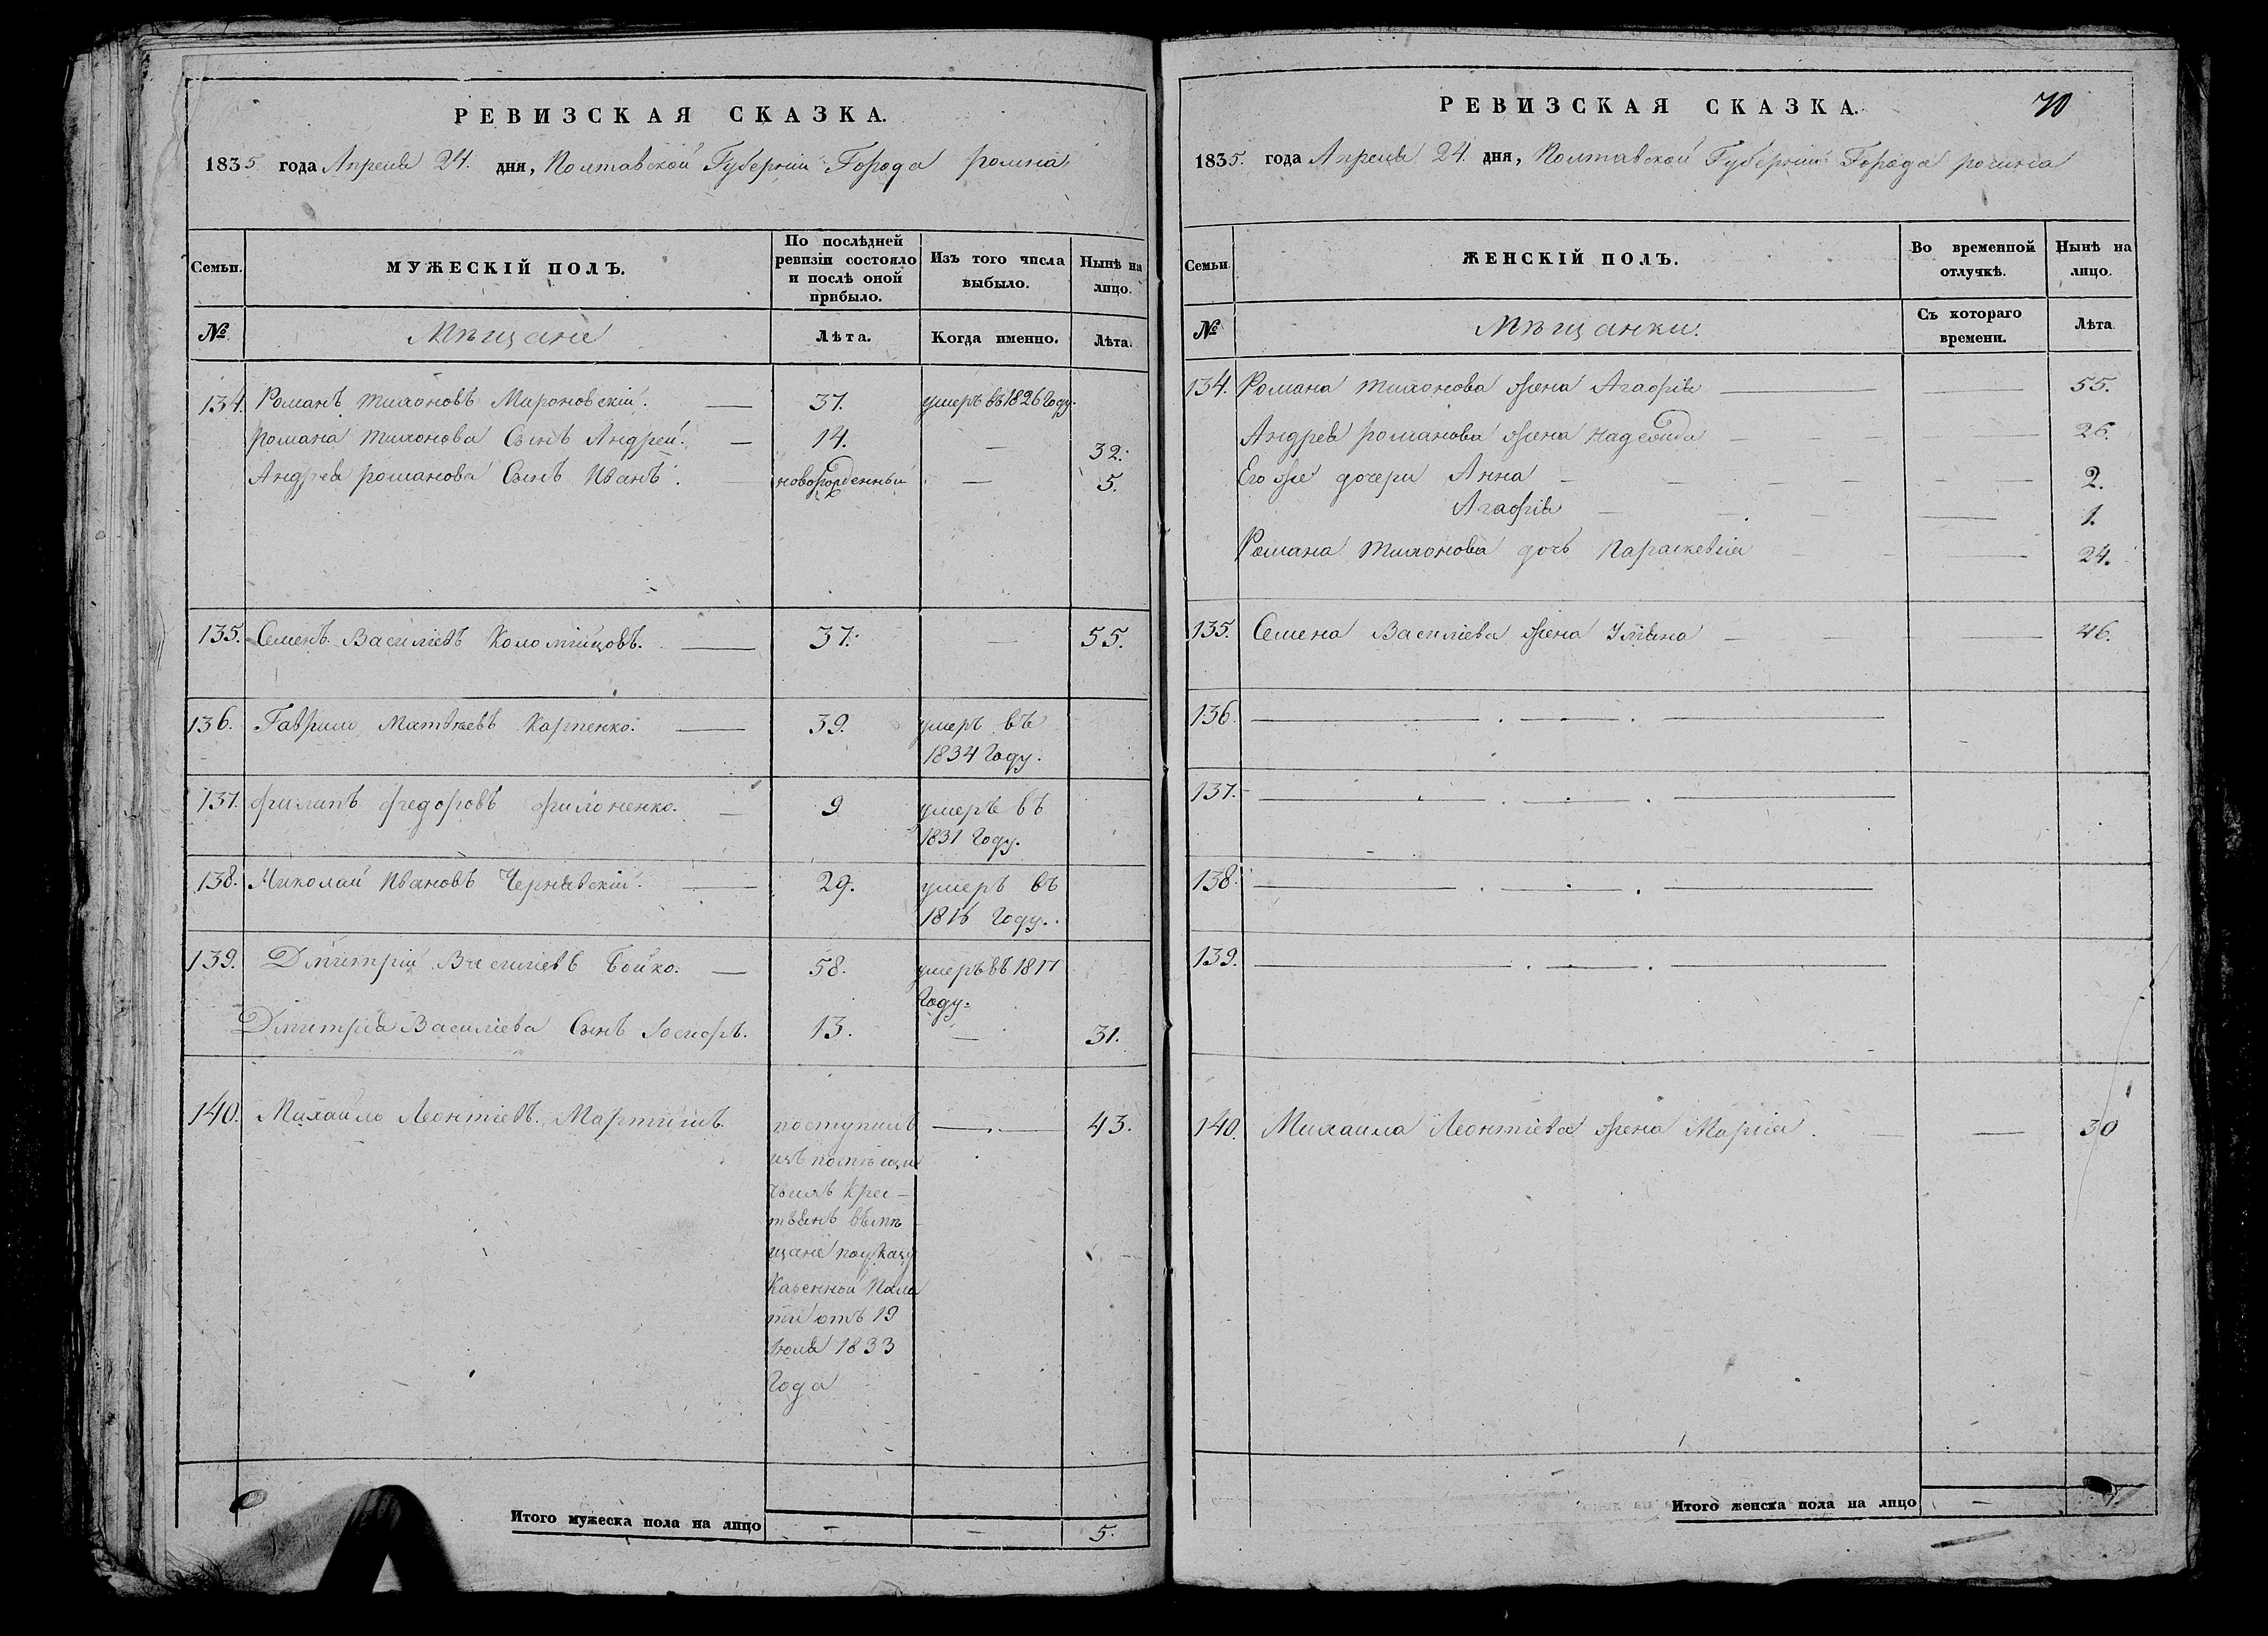 РЕВИЗСКАЯ СКАЗКА.
1835 года Апреля 24. дня, Полтавской Губернии Города ромна
Семьи.
МУЖЕСКІЙ ПОЛЪ.
По послѣдней ревизіи состояло и послѣ оной прибыло.
Изъ того числа выбыло.
Нынѣ на лицо.
№
Мѣщане
Лѣта.
Когда именно.
Лѣта.
134. Романъ тихоновъ Мироновскій. 37. умеръ въ 1826 Году.
романа тихонова Сынъ Андрей. 14. — 32.
Андрея романова Сынъ Иванъ. новорожденный — 5.
135. Семенъ Василіевъ Коломійцовъ. 37. — 55.
136. Гаврило Матвѣевъ Карпенко. 39. умеръ въ
1834 Году.
137. филипъ федоровъ филоненко. 9 умеръ въ
1831 Году.
138. Николай Ивановъ Чернявскій. 29. умеръ въ
1816 Году.
139. Дмитрій Василіевъ Бойко. 58. умеръ въ 1817
Году.
Дмитрія Василіева Сынъ Іосифъ. 13. — 31.
140. Михайло Леонтіевъ Мартишъ. поступилъ — 43.
изъ помѣщи
чьихъ Крес-
тьянъ въ мѣ
щане по указу
Казенной Пала
ти отъ 19
Іюля 1833
Года
Итого мужеска пола на лицо — — 5.
РЕВИЗСКАЯ СКАЗКА.
70
1835. года Апреля 24. дня, Полтавской Губерніи Города ромна
Семьи.
ЖЕНСКІЙ ПОЛЪ.
Во временной отлучкѣ.
Нынѣ на лицо.
№
Мѣщанки.
Съ котораго времени.
Лѣта.
134. Романа тихонова жена Агафія — 55.
Андрея романова жена надежда — 26.
Его же дочери Анна — 2.
Агафія — 1.
Романа тихонова дочь Параскевія — 24.
135. Семена Василіева жена Уліяна — 46.
136.
137.
138.
139.
140. Михаила Леонтіева жена Марія. — 30
Итого женска пола на лицо —